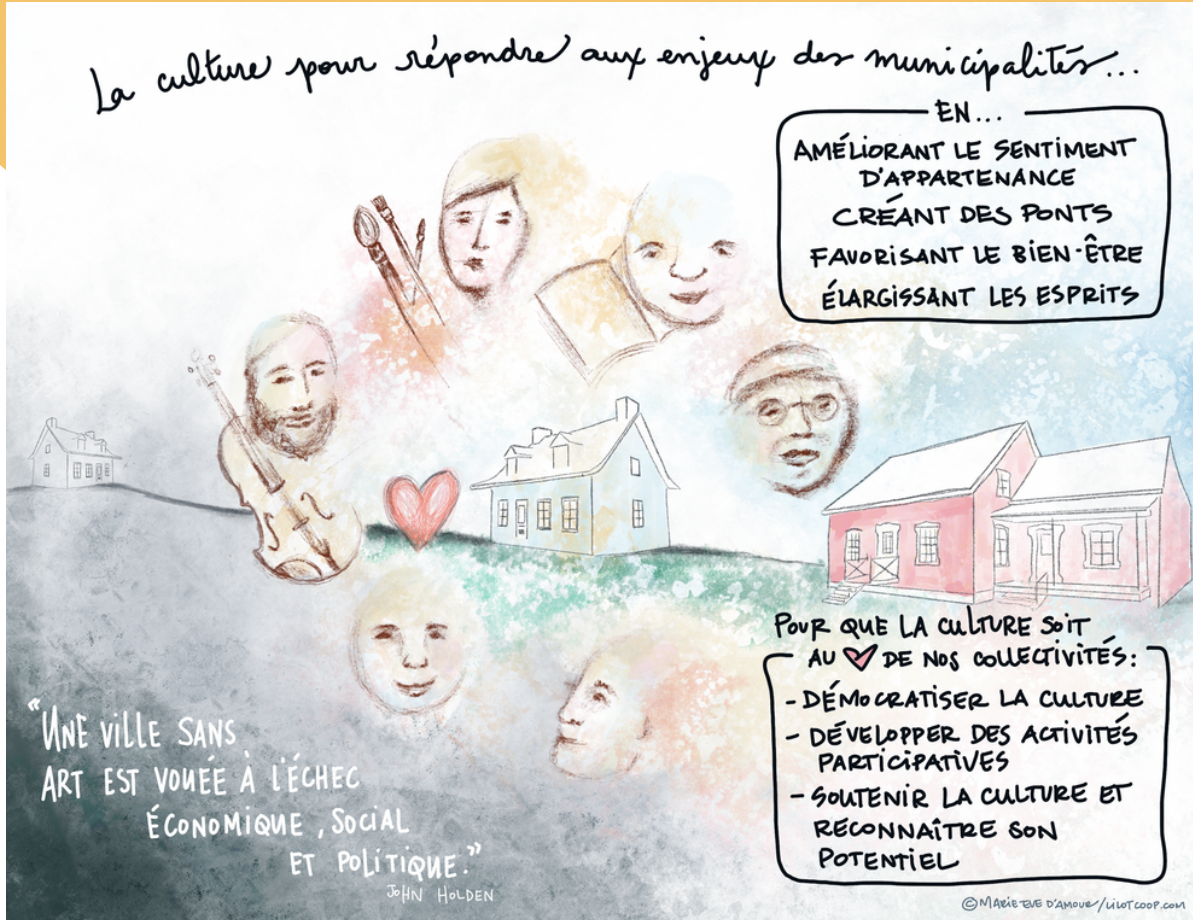 La culture pour répondre aux enjeux des municipalités...
EN...
AMÉLIORANT LE SENTIMENT
D'APPARTENANCE
CRÉANT DES PONTS
FAVORISANT LE BIEN-ÊTRE
ÉLARGISSANT LES ESPRITS
POUR QUE LA CULTURE SOIT
AU ♥ DE NOS COLLECTIVITÉS:
- DÉMOCRATISER LA CULTURE
- DÉVELOPPER DES ACTIVITÉS
PARTICIPATIVES
- SOUTENIR LA CULTURE ET
RECONNAÎTRE SON
POTENTIEL
"UNE VILLE SANS
ART EST VOUÉE À L'ÉCHEC
ÉCONOMIQUE, SOCIAL
ET POLITIQUE."
JOHN HOLDEN
© MARIE EVE D'AMOUR/LILOTCOOP.COM